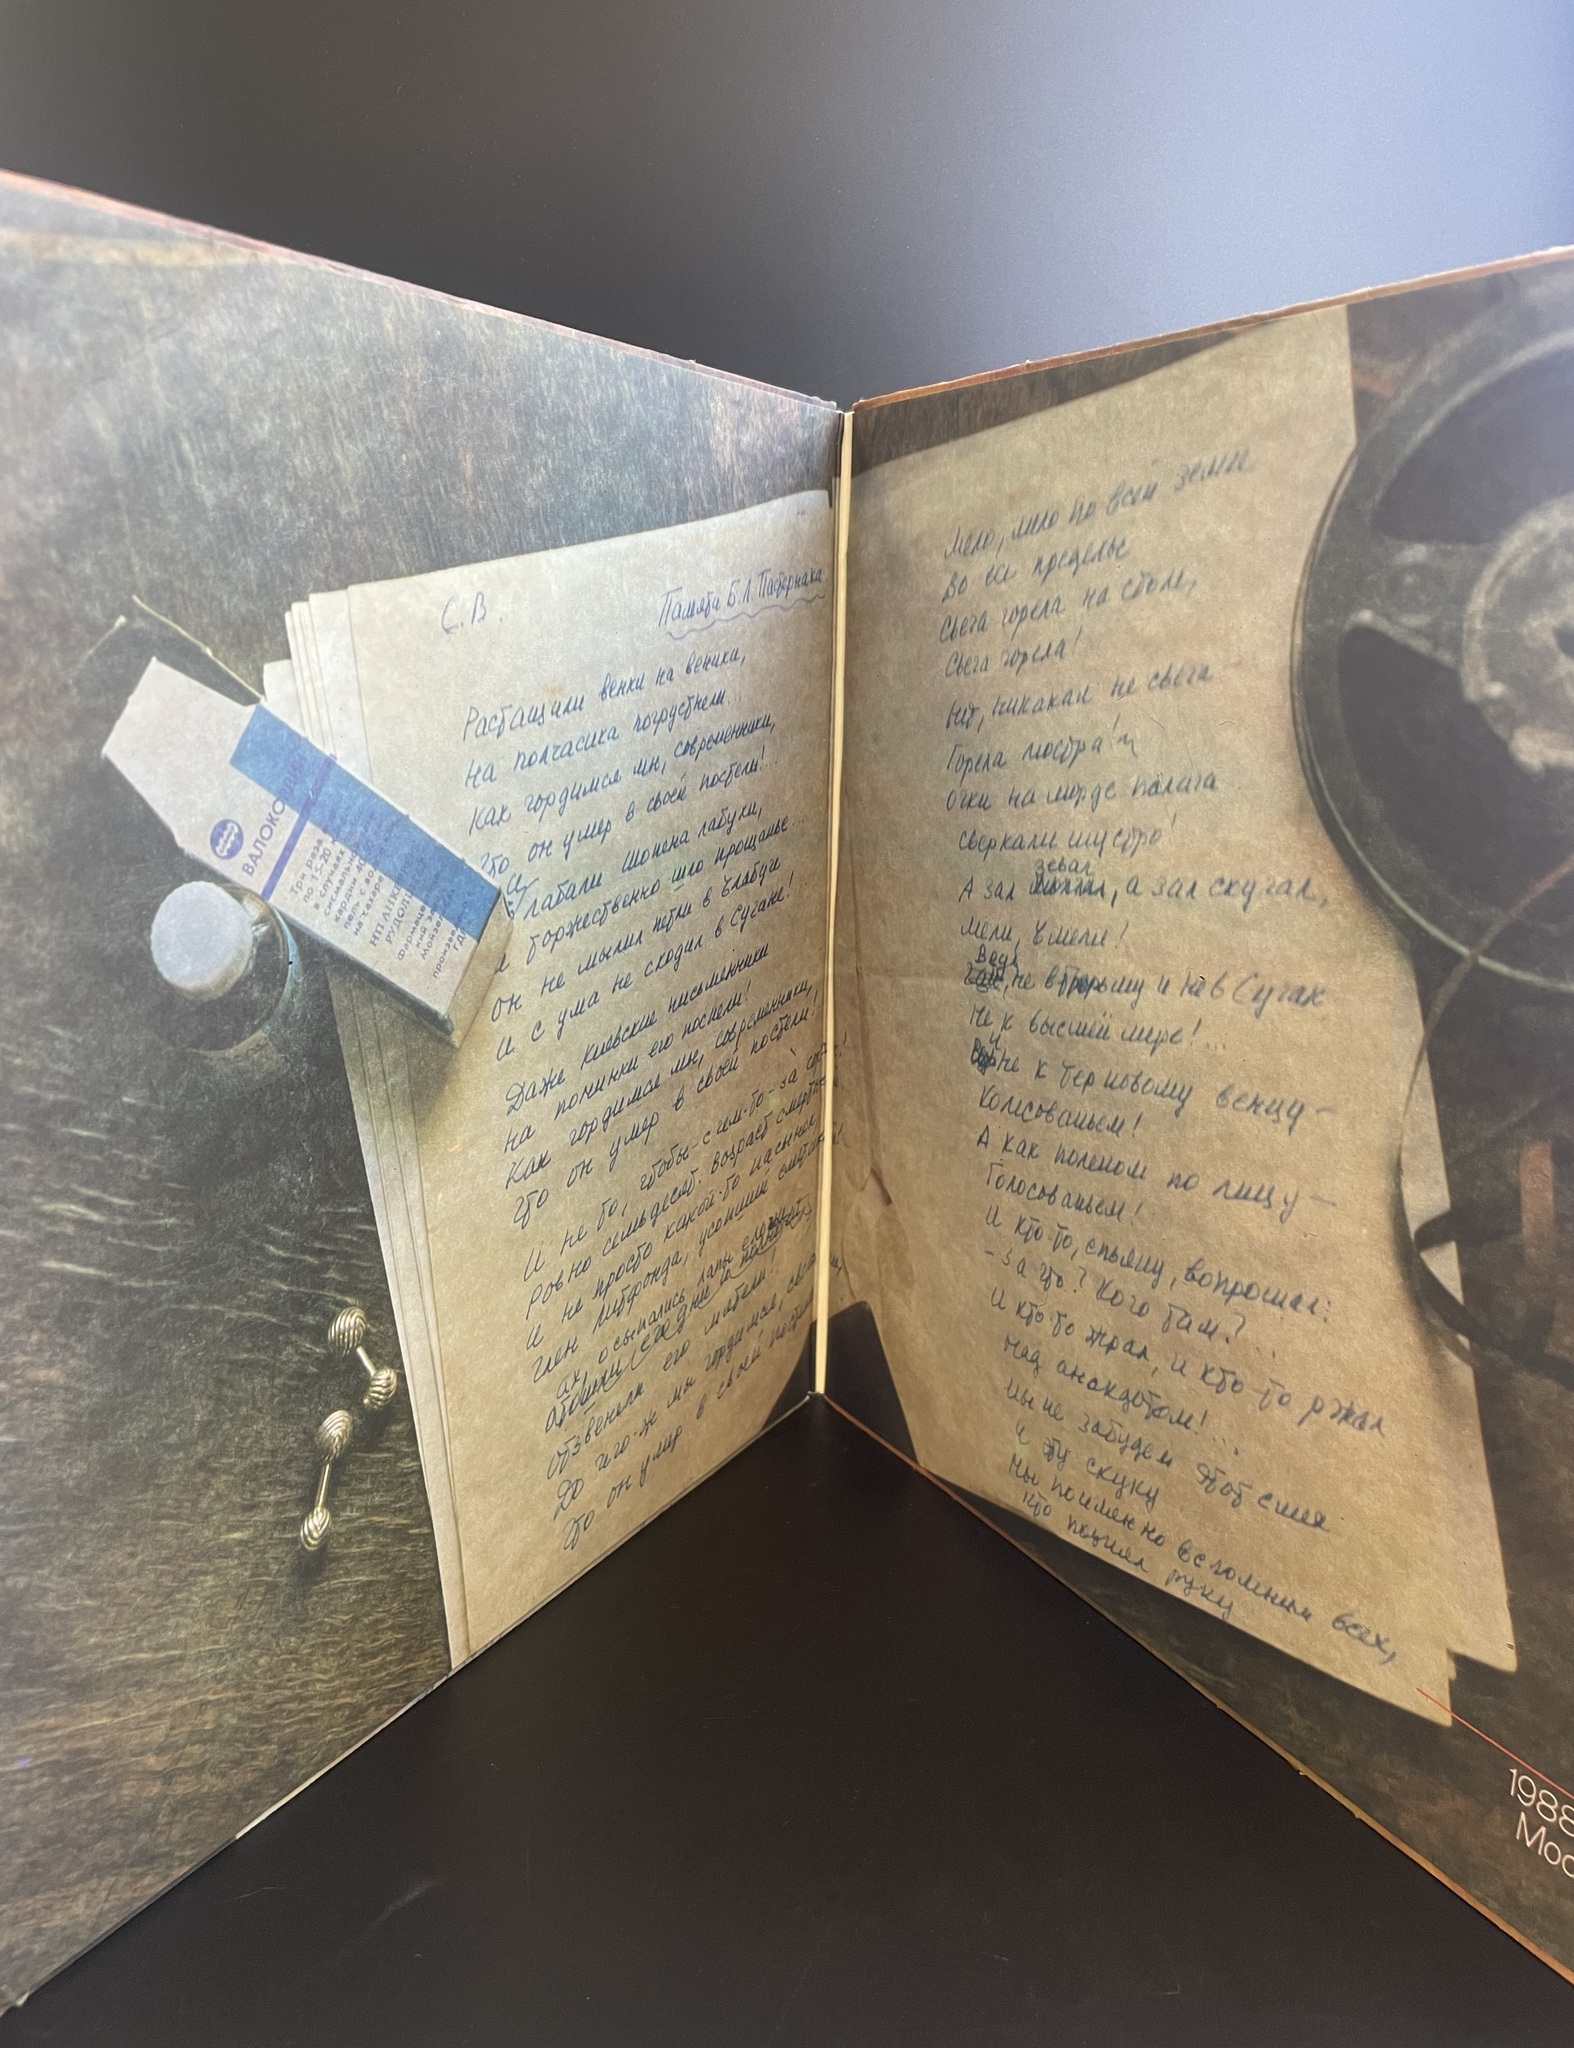 ВАЛОКОРДИН
Три раза
по 15-20
в случаях
НП АНКЕ
РУДОЛЬ
С. В.
Памяти Б. Л. Пастернака
Растащили венки на веники,
на полчасика погрустнели...
Как гордимся мы, современники,
Что он умер в своей постели!..
И лабали Шопена лабухи,
и торжественно шло прощанье...
он не мылил петли в Елабуге
и с ума не сходил в Сучане!
Даже Киевские письменники
на поминки его поспели!
Как гордимся мы, современники,
Что он умер в своей постели!
И не то, чтобы с чем-то за сорок!
Ровно семьдесят. возраст смертный.
И не просто какой-то пасынок
член литфонда, усопший смертный!
ах, осыпались лапы елочьи
его метели!
До чего-ж мы гордимся,
Что он умер в своей постели
Мело, мело по всей земле
Во все пределы
Свеча горела на столе,
Свеча горела!
Нет, никакая не свеча
Горела люстра!
Очки на морде палача
сверкали шустро!
зевал
А зал, а зал скучал,
Мели, Емеля!
Ведь
не в тюрьму и не в Сучан
Не к высшей мере!...
и
не к терновому венцу —
Колесованьем!
А как поленом по лицу —
Голосованьем!
И кто-то, спьяну, вопрошал:
- За что? Кого там?...
И кто-то жрал, и кто-то ржал
над анекдотом!...
Мы не забудем этот смех
и эту скуку
Мы поименно вспомним всех,
кто поднял руку
1988
Мос